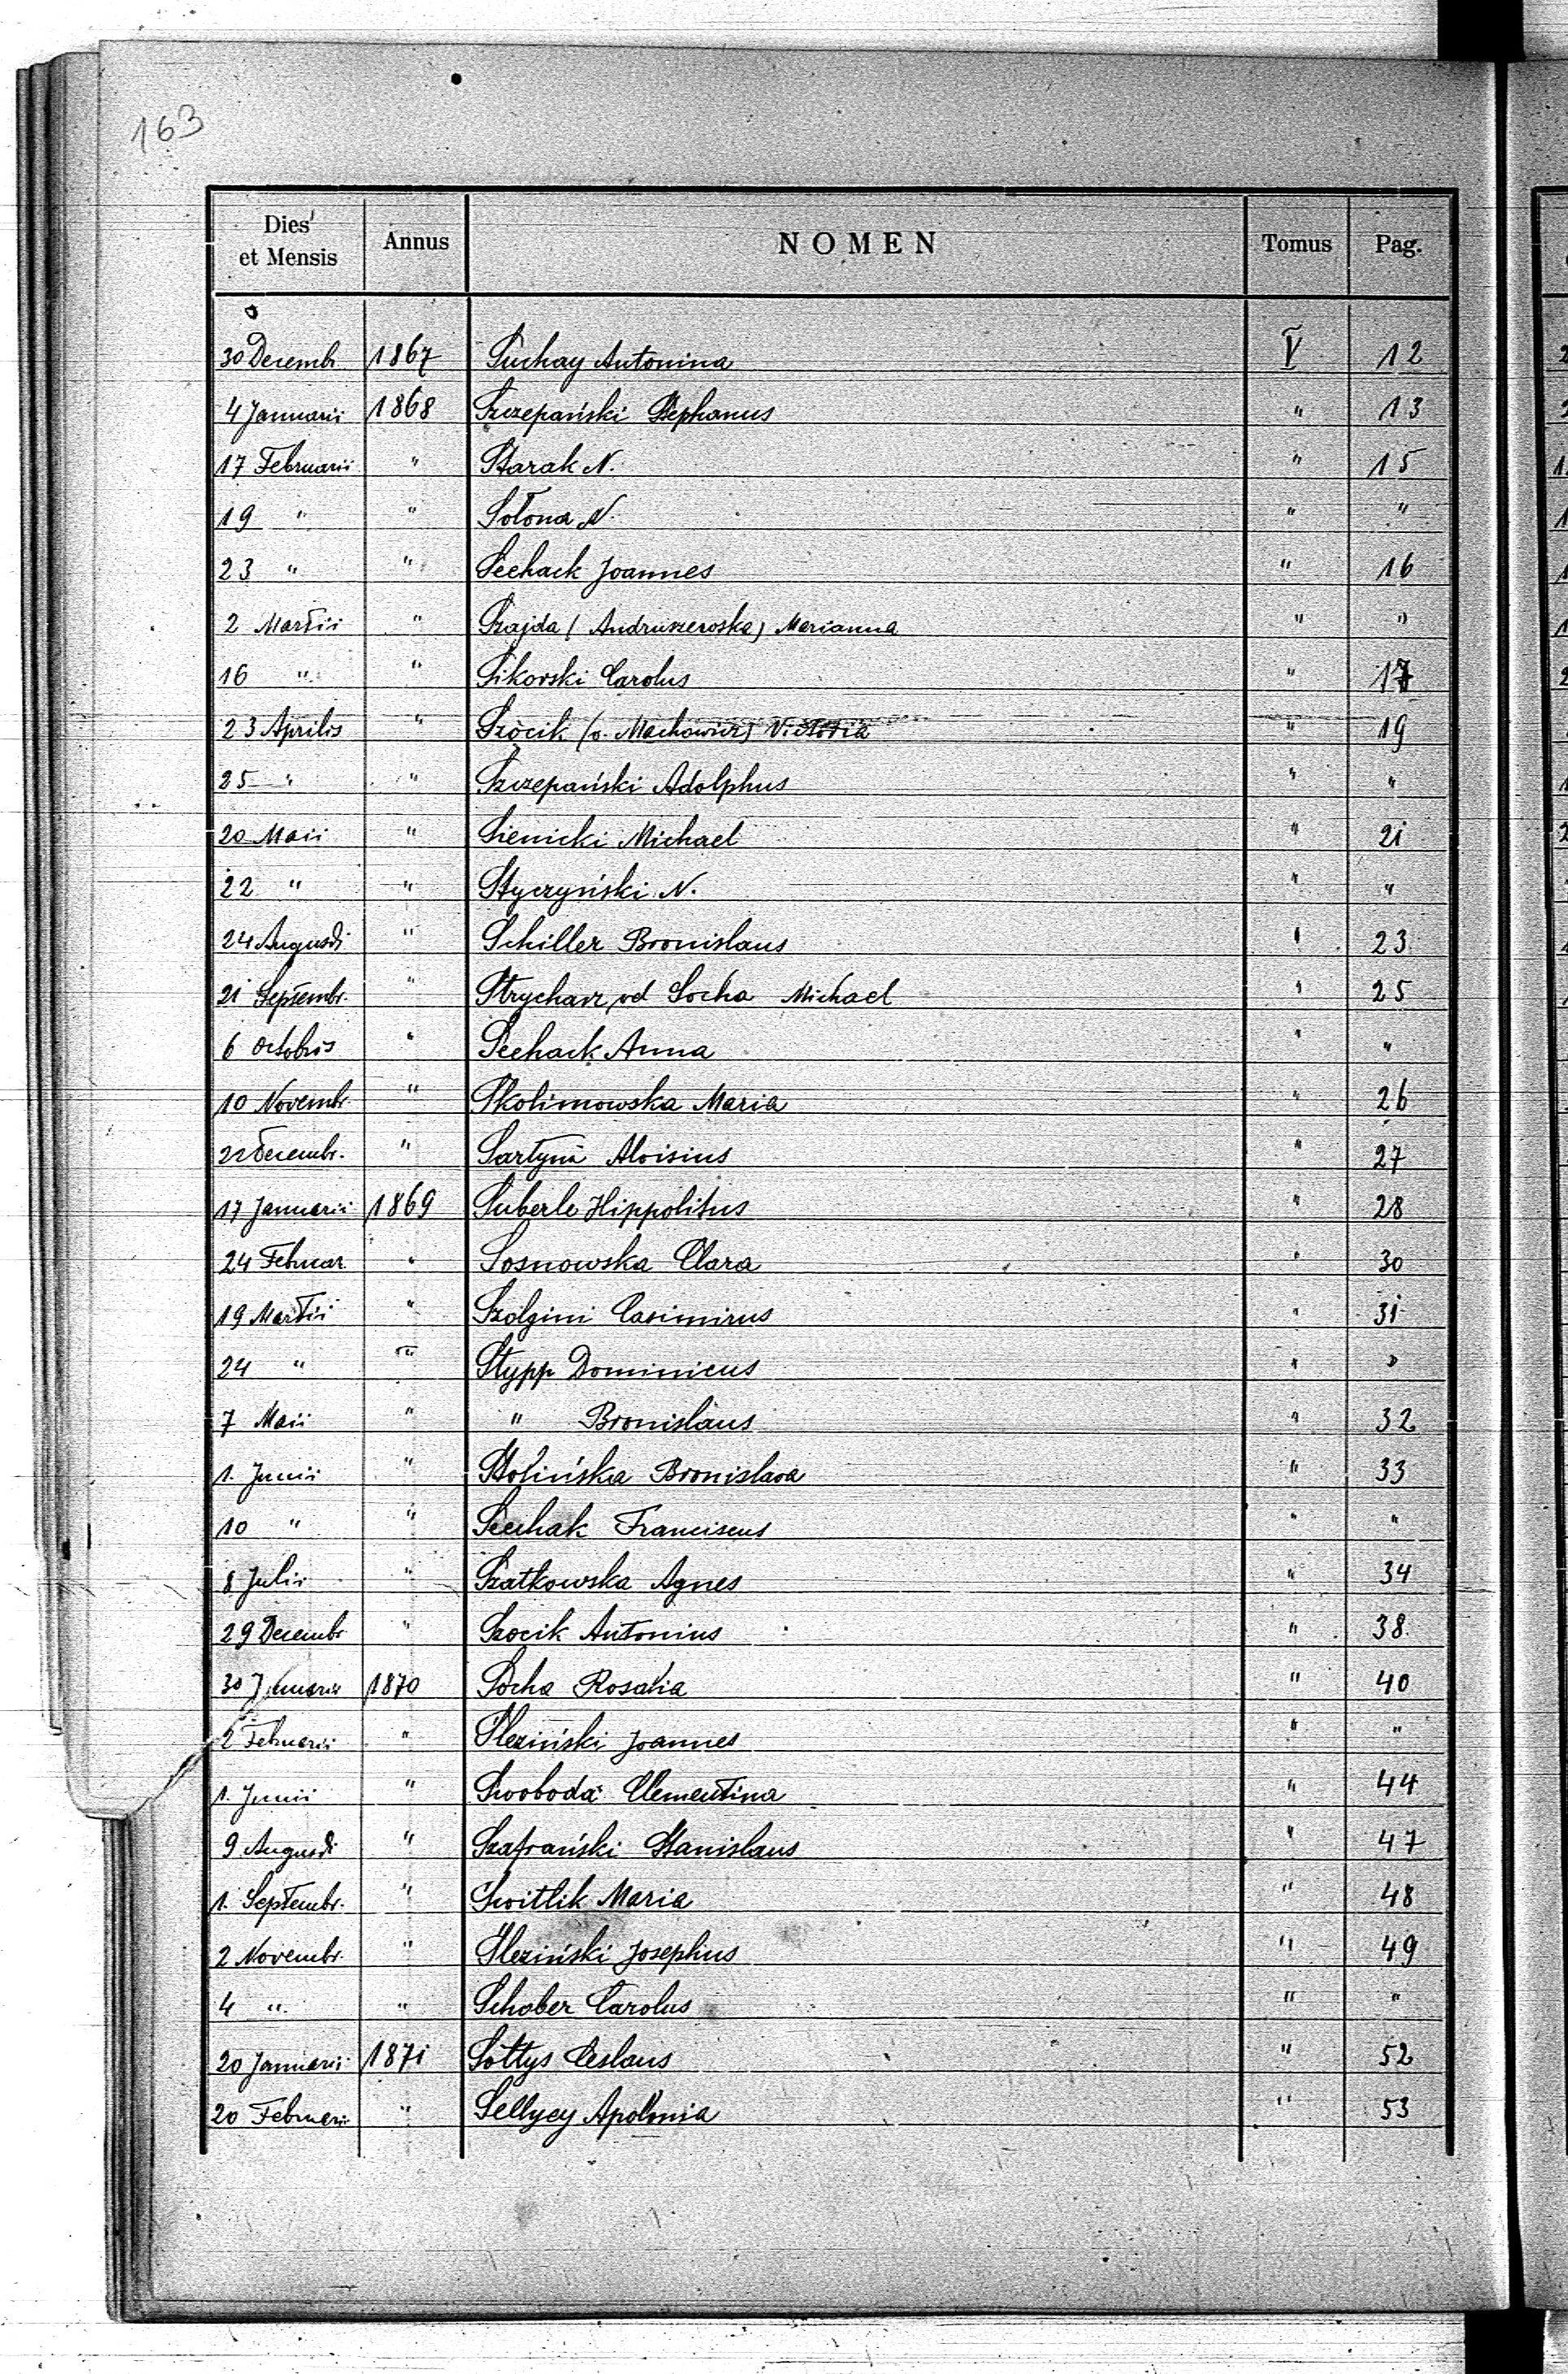 163
Dies et Mensis Annus NOMEN Tomus Pag.
30 Decembr. 1867 Suchay Antonina V 12
4 Januarii 1868 Szczepański Stephanus " 13
17 Februarii " Starak N. " 15
19 " " Sołona N. " "
23 " " Seehack Joannes " 16
2 Martii " Szajda (Andruszewska) Marianna " "
16 " " Sikorski Carolus " 17
23 Aprilis " Szòcik (o. Machowicz) Victoria " 19
25 " " Szczepański Adolphus " "
20 Maii " Sienicki Michael " 21
22 " " Styczyński N. " "
24 Augusti " Schiller Bronislaus " 23
21 Septembr. " Strycharz vel Socha Michael " 25
6 Octobris " Seehack Anna " "
10 Novembr. " Skolimowska Maria " 26
22 Decembr. " Sartyni Aloisius " 27
17 Januarii 1869 Suberle Hippolitus " 28
24 Februar. " Sosnowska Clara " 30
19 Martii " Szolgini Casimirus " 31
24 " " Stypp Dominicus " "
7 Maii " " Bronislaus " 32
1. Junii " Stolińska Bronislava " 33
10 " " Seehak Franciscus " "
8 Julii " Szatkowska Agnes " 34
29 Decembr " Szocik Antonius " 38
30 Januarii 1870 Socha Rosalia " 40
2 Februarii " Śleziński Joannes " "
1. Junii " Swoboda Clementina " 44
9 Augusti " Szafrański Stanislaus " 47
1. Septembr. " Switlik Maria " 48
2 Novembr. " Śleziński Josephus " 49
4 " " Schober Carolus " "
20 Januarii 1871 Sołtys Ceslaus " 52
20 Februarii " Sellyey Apolonia " 53